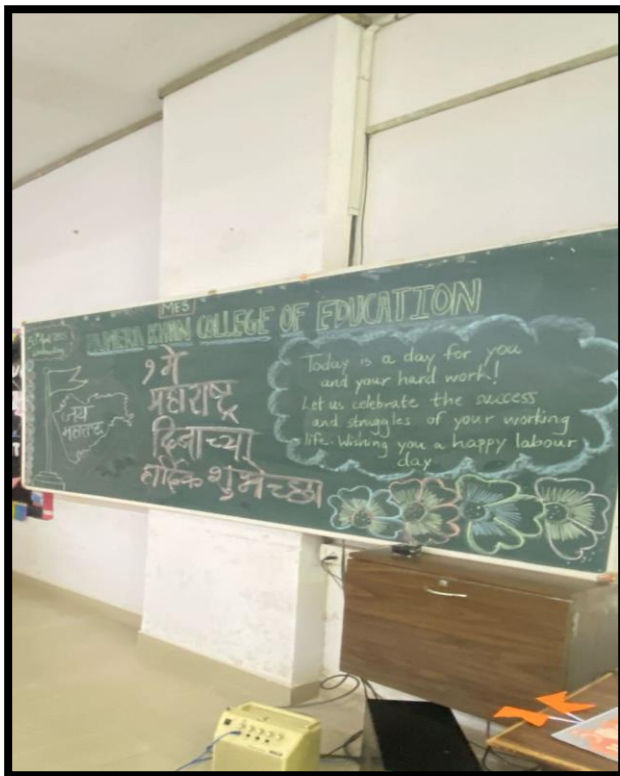 MES
KHAN COLLEGE OF EDUCATION
जय
१ मे
महाराष्ट्र
दिनाच्या
हार्दिक शुभेच्छा
Today is a day for you
and your hard work!
Let us celebrate the success
and struggles of your working
life. Wishing you a happy labour
day